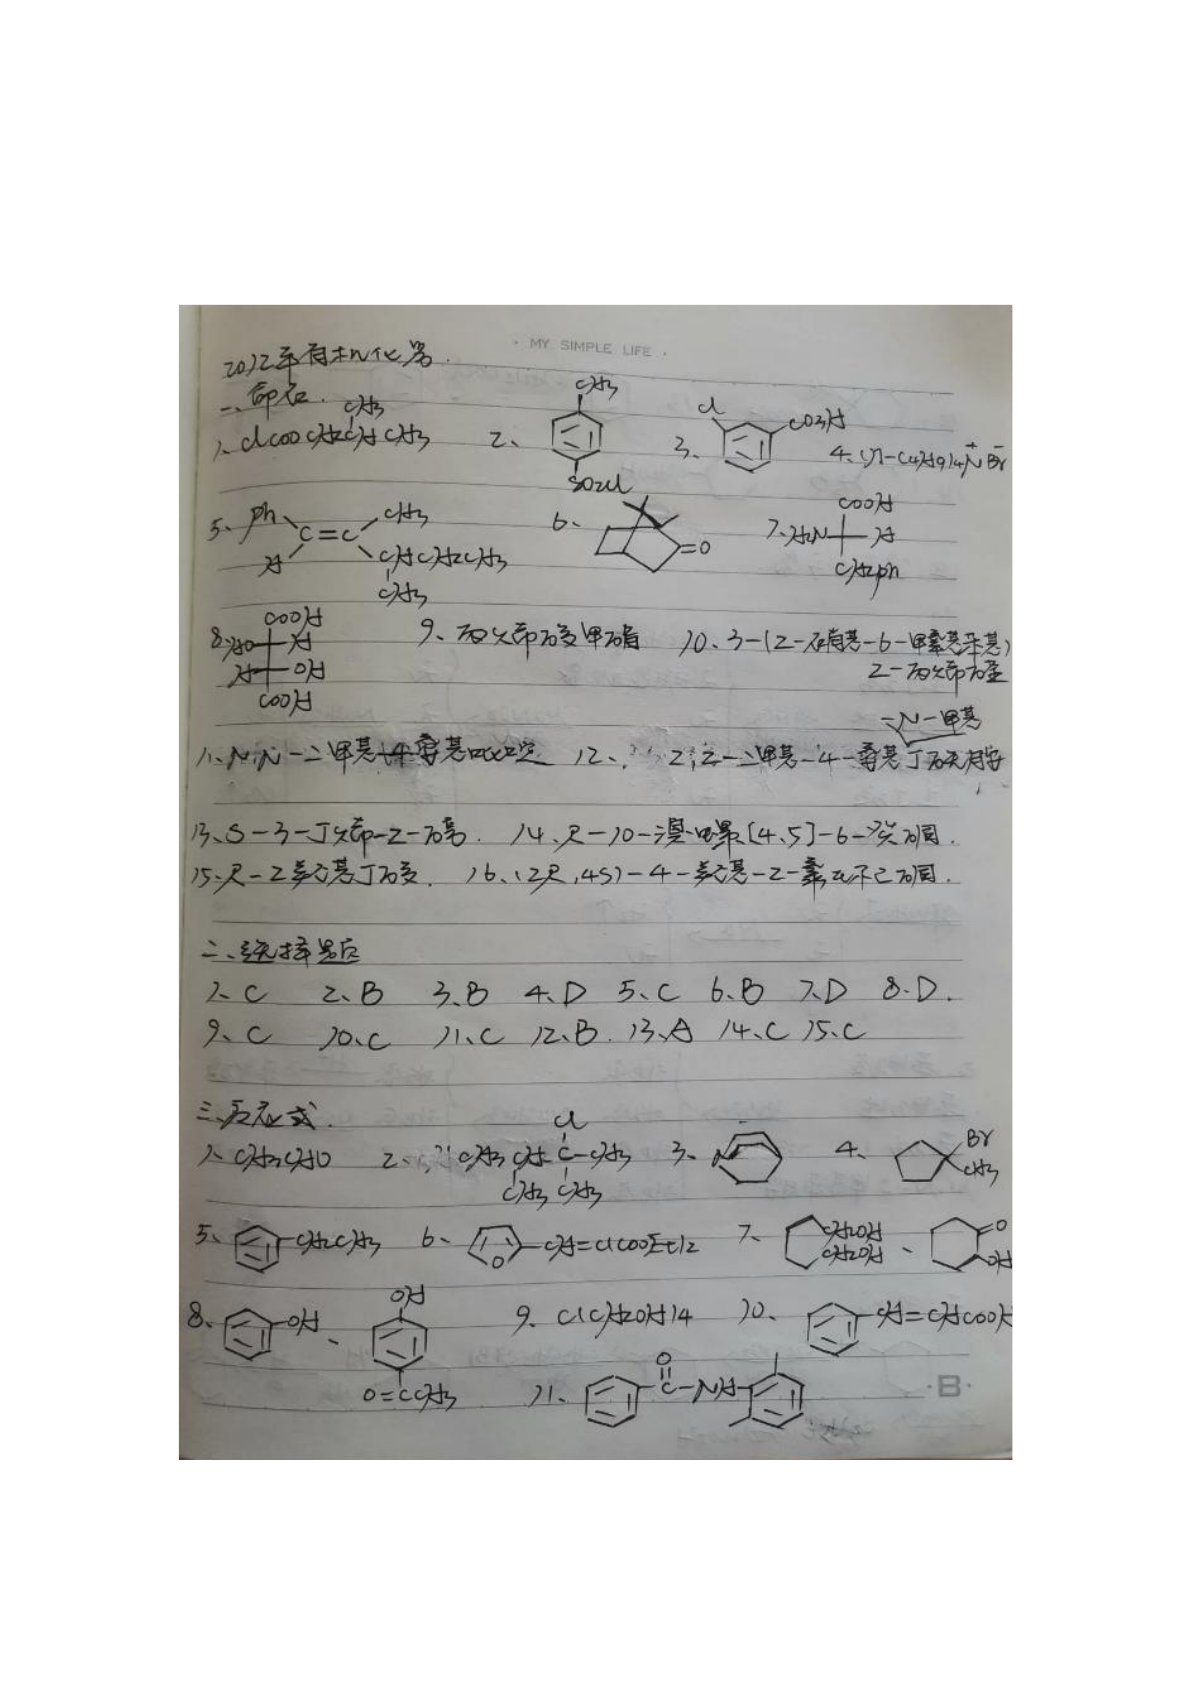 MY SIMPLE LIFE
2012年有机化学
一、命名.
1、ClCOOCH2CHCH3 CH3
2、 CH3 SO2Cl
3、 Cl CO3H
4、(n-C4H9)4N+ Br-
5、 Ph H C=C CH3 CHCH2CH3 CH3
6、 =O
7、 COOH H2N H CH2Ph
8、 COOH HO H H OH COOH
9、丙烯酸甲酯
10、3-(2-硝基-6-甲氧基苯基)
2-丙烯酸
-N-甲基
11、N,N-二甲基-4-氨基吡啶
12、 2,2-二甲基-4-氧基丁
13、S-3-丁烯-2-
14、R-10-溴-螺[4,5]-6-癸酮.
15、R-2氨基丁
16、(2R,4S)-4-氨基-2-氯环己酮.
二、选择题
1、C 2、B 3、B 4、D 5、C 6、B 7、D 8、D.
9、C 10、C 11、C 12、B. 13、A 14、C 15、C
三、反应式.
1、CH3CHO 2、 CH3CH-C-CH3 Cl CH3 CH3 3、 N 4、 Br CH3
5、 CH2CH3 6、 O CH=C(COOEt)2 7、 CH2OH CH2OH 、 O OH
8、 OH 、 OH O=CCH3 9、C(CH2OH)4 10、 CH=CHCOOH
11、 O C-NH
·B·